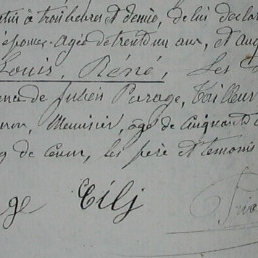 à trois heures et demie, de lui déclar
épouse, agée de trente un ans, et auq
Louis, Réné, Les
de Julien Parage, Tailleur
Menuisier, agé de Cinquante
de Ceux, les père et temoins
ge Tilj